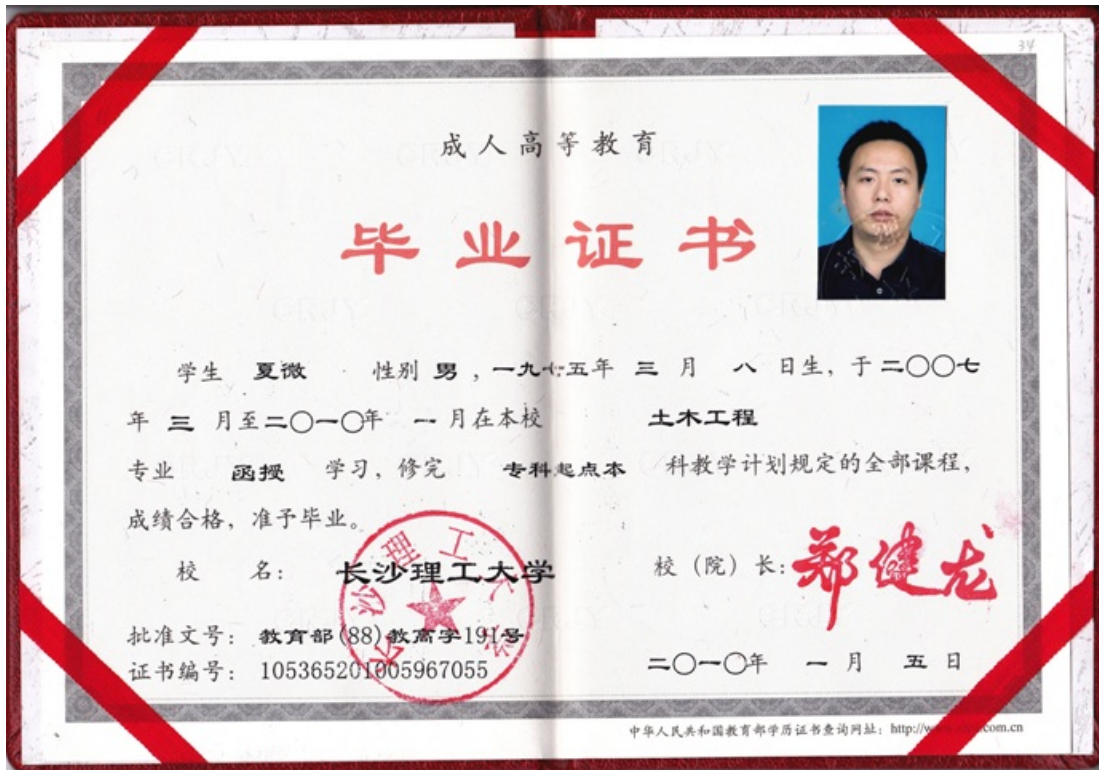 34
成人高等教育
毕业证书
学生 夏微 性别 男，一九七五年 三 月 八 日生，于 二〇〇七
年 三 月至二〇一〇年 一 月在本校 土木工程
专业 函授 学习，修完 专科起点本 科教学计划规定的全部课程，
成绩合格，准予毕业。
校 名： 长沙理工大学
校（院）长：郑健龙
长沙理工大学
批准文号： 教育部(88)教高字191号
证书编号： 105365201005967055
二〇一〇年 一 月 五 日
中华人民共和国教育部学历证书查询网址：http://www.com.cn